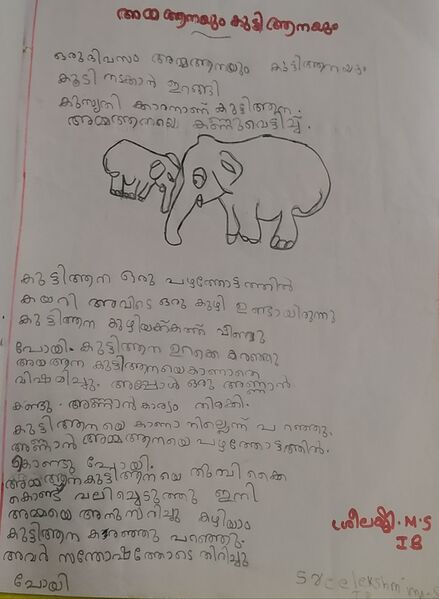 അമ്മ ആനയും കുട്ടി ആനയും
ഒരു ദിവസം അമ്മആനയും കുട്ടിആനയും
കൂടി നടക്കാൻ ഇറങ്ങി
കുസൃതി ക്കാരനാണ് കുട്ടിആന.
അമ്മആനയെ കണ്ണുവെട്ടിച്ച്.
കുട്ടിആന ഒരു പഴത്തോട്ടത്തിൽ
കയറി അവിടെ ഒരു കുഴി ഉണ്ടായിരുന്നു
കുട്ടിആന കുഴിയക്കത്ത് വീണു
പോയി. കുട്ടിആന ഉറക്കെ കരഞ്ഞു
അമ്മആന കുട്ടിആനയെകാണാതെ
വിഷമിച്ചു. അപ്പോൾ ഒരു അണ്ണാൻ
കണ്ടു. അണ്ണാൻ കാര്യം തിരക്കി.
കുട്ടിആനയെ കാണാനില്ലെന്ന് പറഞ്ഞു.
അണ്ണാൻ അമ്മആനയെ പഴത്തോട്ടത്തിൽ.
കൊണ്ടു പോയി.
അമ്മആനകുട്ടിആനയെ തുമ്പി കൈ
കൊണ്ട് വലിച്ചെടുത്തു ഇനി
അമ്മയെ അനുസരിച്ചു കഴിയാം
കുട്ടിആന കരഞ്ഞു പറഞ്ഞു.
അവർ സന്തോഷത്തോടെ തിരിച്ചു
പോയി
ശ്രീലക്ഷ്മി. M.S
I B
Sreelekshmi M.S
I B